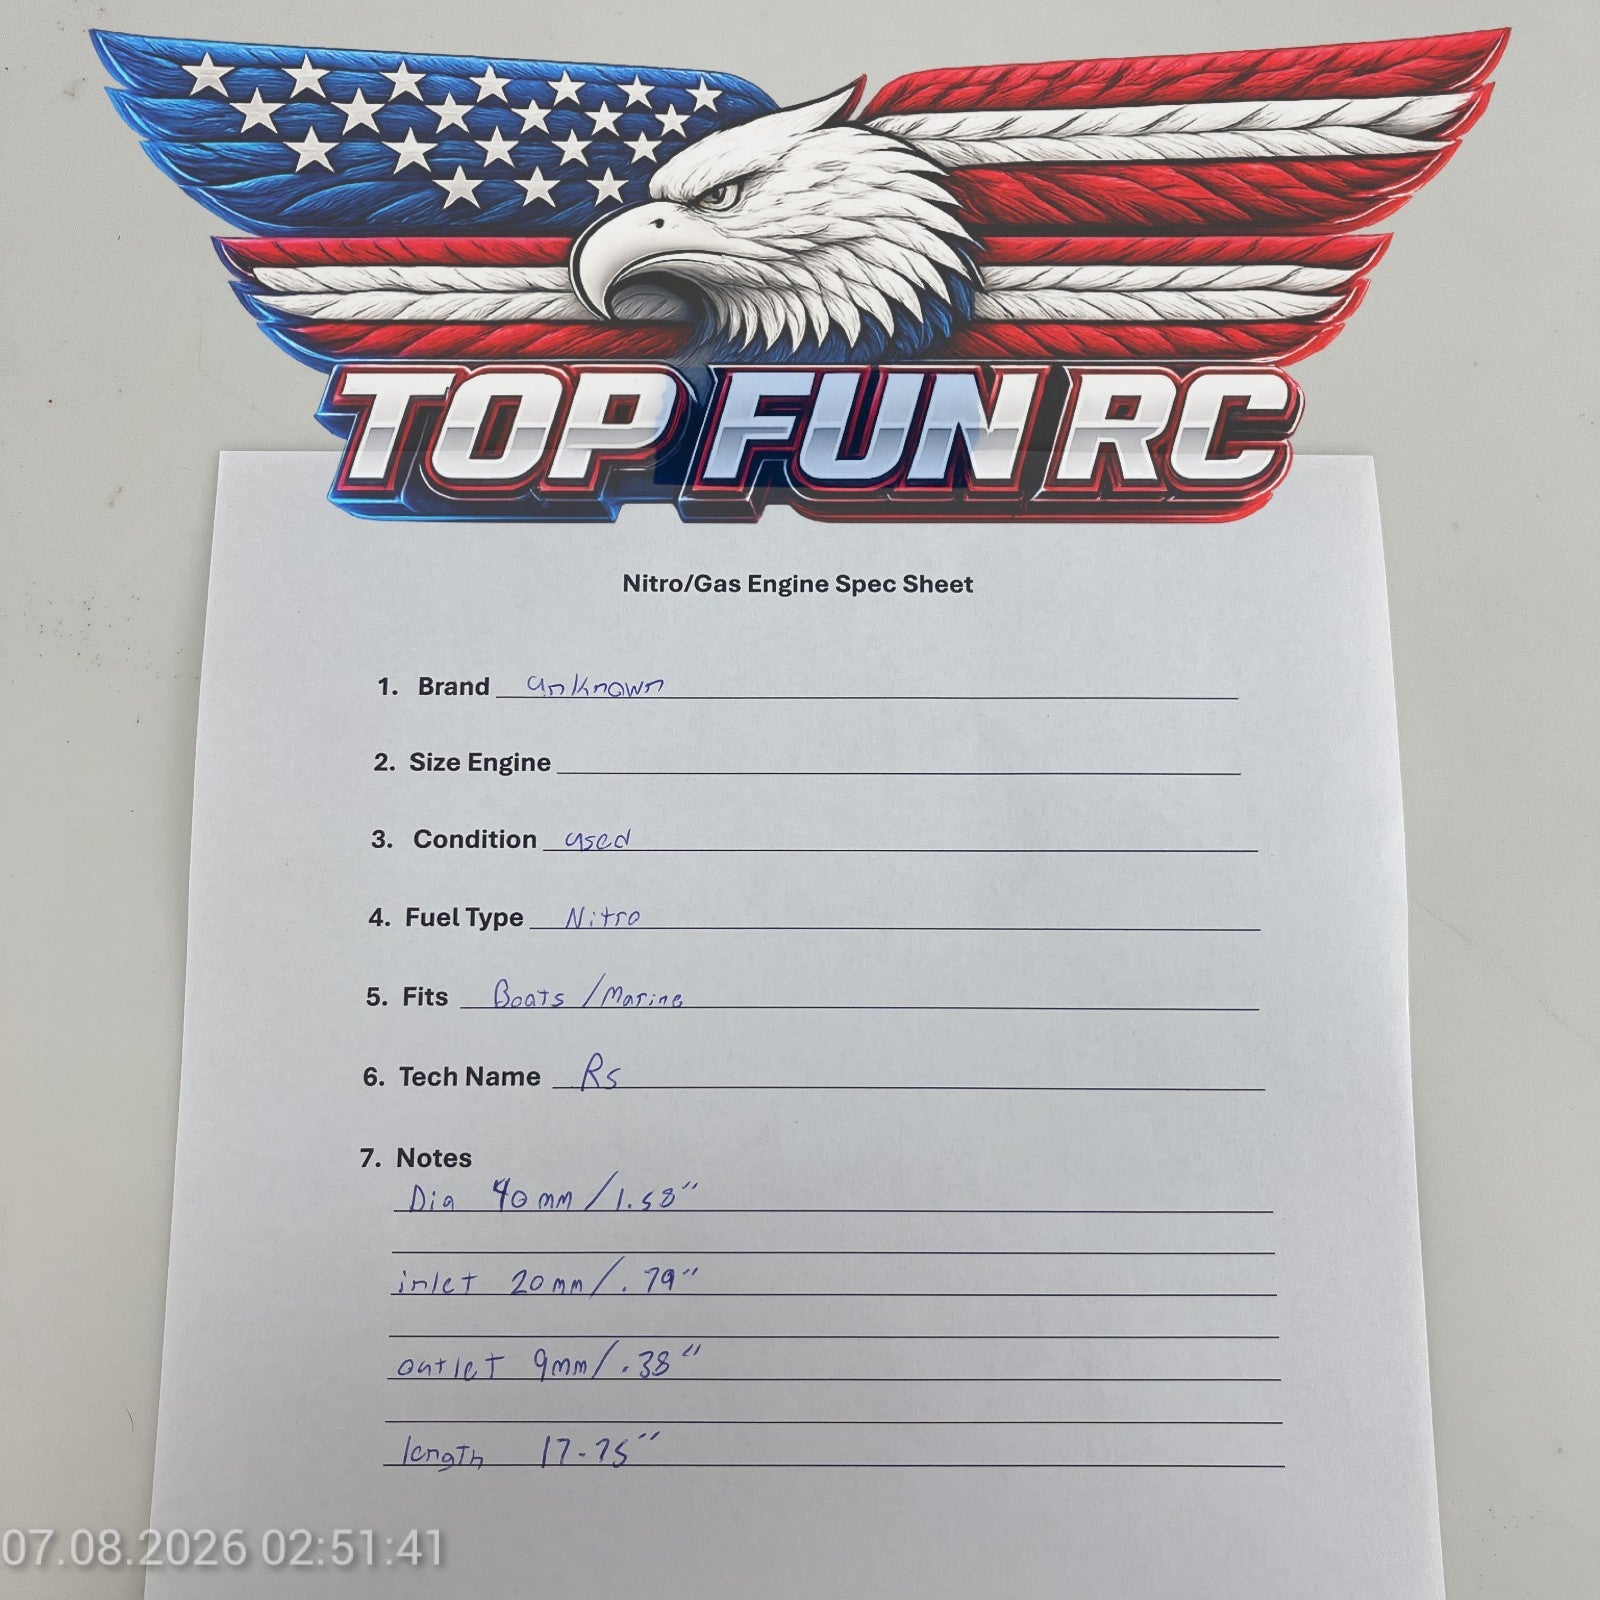 TOP FUN RC
Nitro/Gas Engine Spec Sheet
1. Brand unknown
2. Size Engine
3. Condition used
4. Fuel Type Nitro
5. Fits Boats / Marine
6. Tech Name Rs
7. Notes
Dia 40mm / 1.58"
inlet 20mm / .79"
outlet 9mm / .38"
length 17.75"
07.08.2026 02:51:41